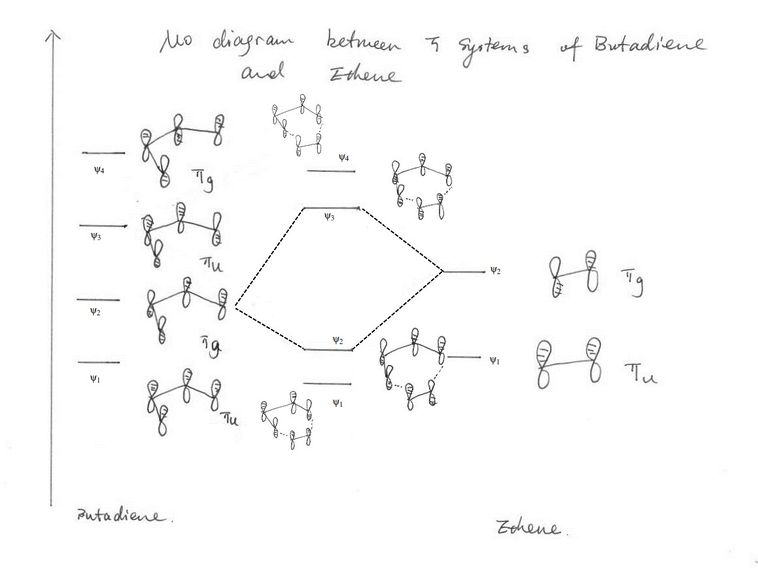 MO diagram between π systems of Butadiene
and Ethene
ψ₄
πg
ψ₃
πu
ψ₂
πg
ψ₁
πu
ψ₄
ψ₃
ψ₂
ψ₁
ψ₂
πg
ψ₁
πu
Butadiene.
Ethene.